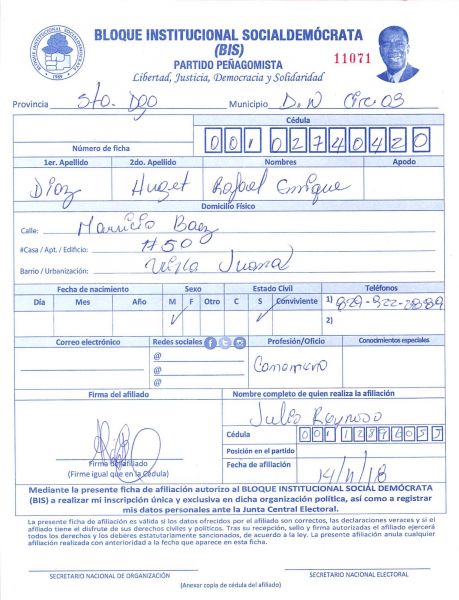 BLOQUE INSTITUCIONAL SOCIALDEMÓCRATA
(BIS)
PARTIDO PEÑAGOMISTA
Libertad, Justicia, Democracia y Solidaridad
11071
BLOQUE INSTITUCIONAL SOCIALDEMOCRATA
1989
Provincia Sto. Dgo Municipio D.N Circ 03
Cédula
Número de ficha 001 0274042 0
1er. Apellido 2do. Apellido Nombres Apodo
Díaz Huget Rafael Enrique
Domicilio Físico
Calle: Mauricio Baez
#Casa / Apt. / Edificio: #50
Barrio / Urbanización: Villa Juana
Fecha de nacimiento Sexo Estado Civil Teléfonos
Día Mes Año M F Otro C S Conviviente 1)
2)
Correo electrónico Redes sociales Profesión/Oficio Conocimientos especiales
@
@
@
Camarero
Firma del afiliado Nombre completo de quien realiza la afiliación
Julio Reynoso
Cédula
Posición en el partido
Firma del afiliado
(Firme igual que en la Cédula)
Fecha de afiliación 14/11/18
Mediante la presente ficha de afiliación autorizo al BLOQUE INSTITUCIONAL SOCIAL DEMÓCRATA
(BIS) a realizar mi inscripción única y exclusiva en dicha organización política, así como a registrar
mis datos personales ante la Junta Central Electoral.
La presente ficha de afiliación es válida si los datos ofrecidos por el afiliado son correctos, las declaraciones veraces y si el
afiliado tiene el disfrute de sus derechos civiles y políticos. Tras su recepción, sello y firma autorizadas el afiliado ejercerá
todos los derechos y los deberes estatutariamente sancionados, de acuerdo a la ley. La presente afiliación anula cualquier
afiliación realizada con anterioridad a la fecha que aparece en esta ficha.
SECRETARIO NACIONAL DE ORGANIZACIÓN SECRETARIO NACIONAL ELECTORAL
(Anexar copia de cédula del afiliado)